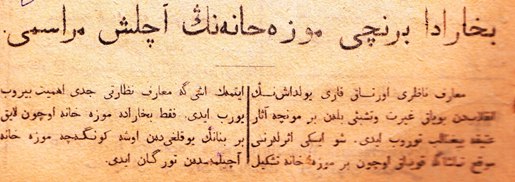 بخارادا برنچی موزه‌خانه‌نڭ آچلش مراسمی.
معارف ناظری اورتاق قاری یولداش‌نڭ
انقلاب‌دن بویان غیرت و تشبثی بلەن بر مونچه آثار
عتیقه ییغناب توروب ایدی. شو ایسکی اثرلرنی
موقع تماشاگه قویماق اوچون بر موزه خانه تشکیل
ایتمه‌ك ایشی‌گه معارف نظارتی جدی اهمیت بیروب
یورب ایدی. فقط بخاراده موزه خانه اوچون لایق
بر بنانڭ یوقلغی‌دن اوشبو کونگه‌چه موزه خانه
آچیلمه‌سدن تورگان ایدی.